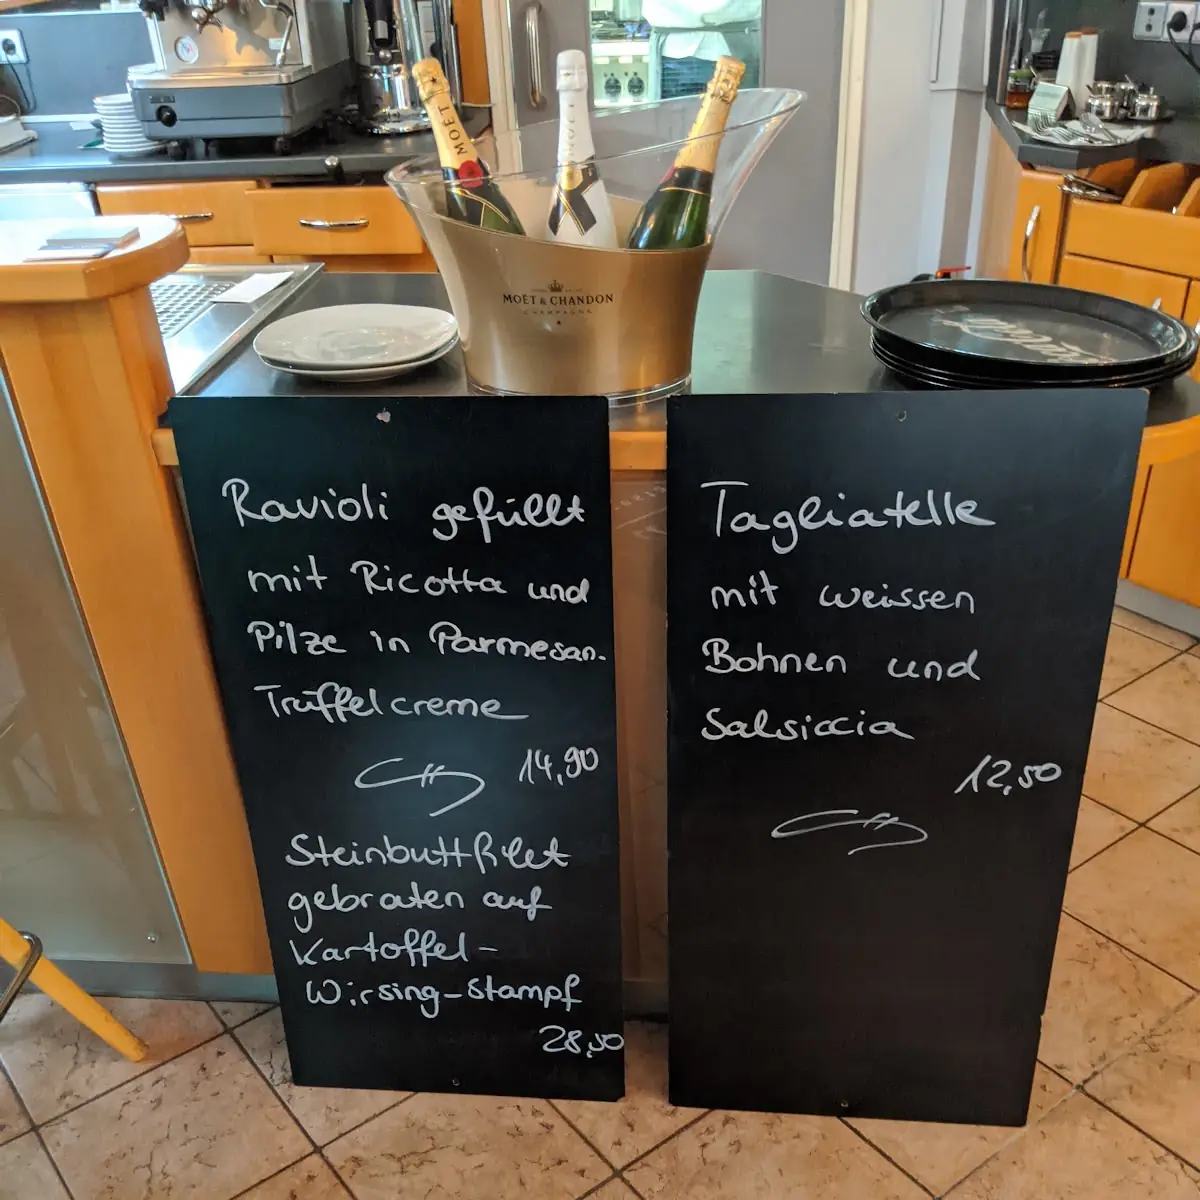 MOËT
MOËT & CHANDON
CHAMPAGNE
Ravioli gefüllt
mit Ricotta und
Pilze in Parmesan-
Trüffelcreme
14,90
Steinbuttfilet
gebraten auf
Kartoffel-
Wirsing-Stampf
28,50
Tagliatelle
mit weissen
Bohnen und
Salsiccia
12,50